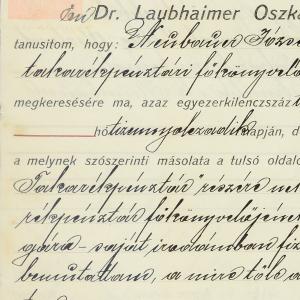 Én Dr. Laubhaimer Oszká
tanusitom, hogy: Neubauer Józse
takarékpénztári főkönyvelő
megkeresésére ma, azaz egyezerkilenczszázt
hó tizennyolczadik napján, d
a melynek szószerinti másolata a tulsó oldalo
Takarékpénztár" részére
rékpénztár főkönyvelőjéne
gára – saját irodámban
bemutattam, a mire tőle a